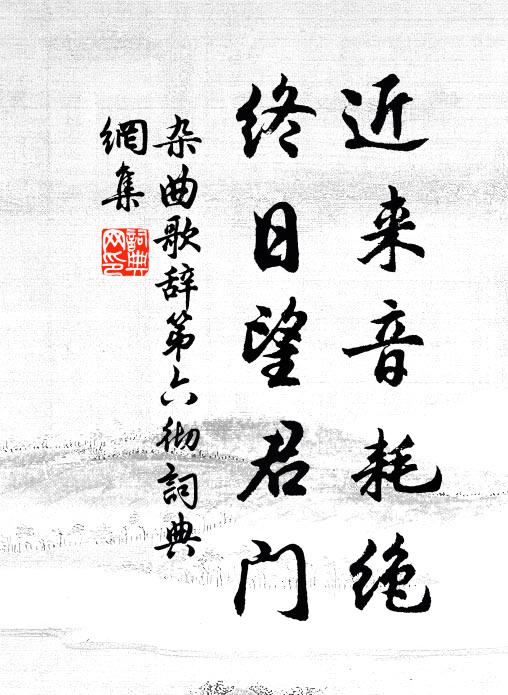 近来音耗绝
终日望君门
杂曲歌辞第六彻詞典
網集
詞典
网印